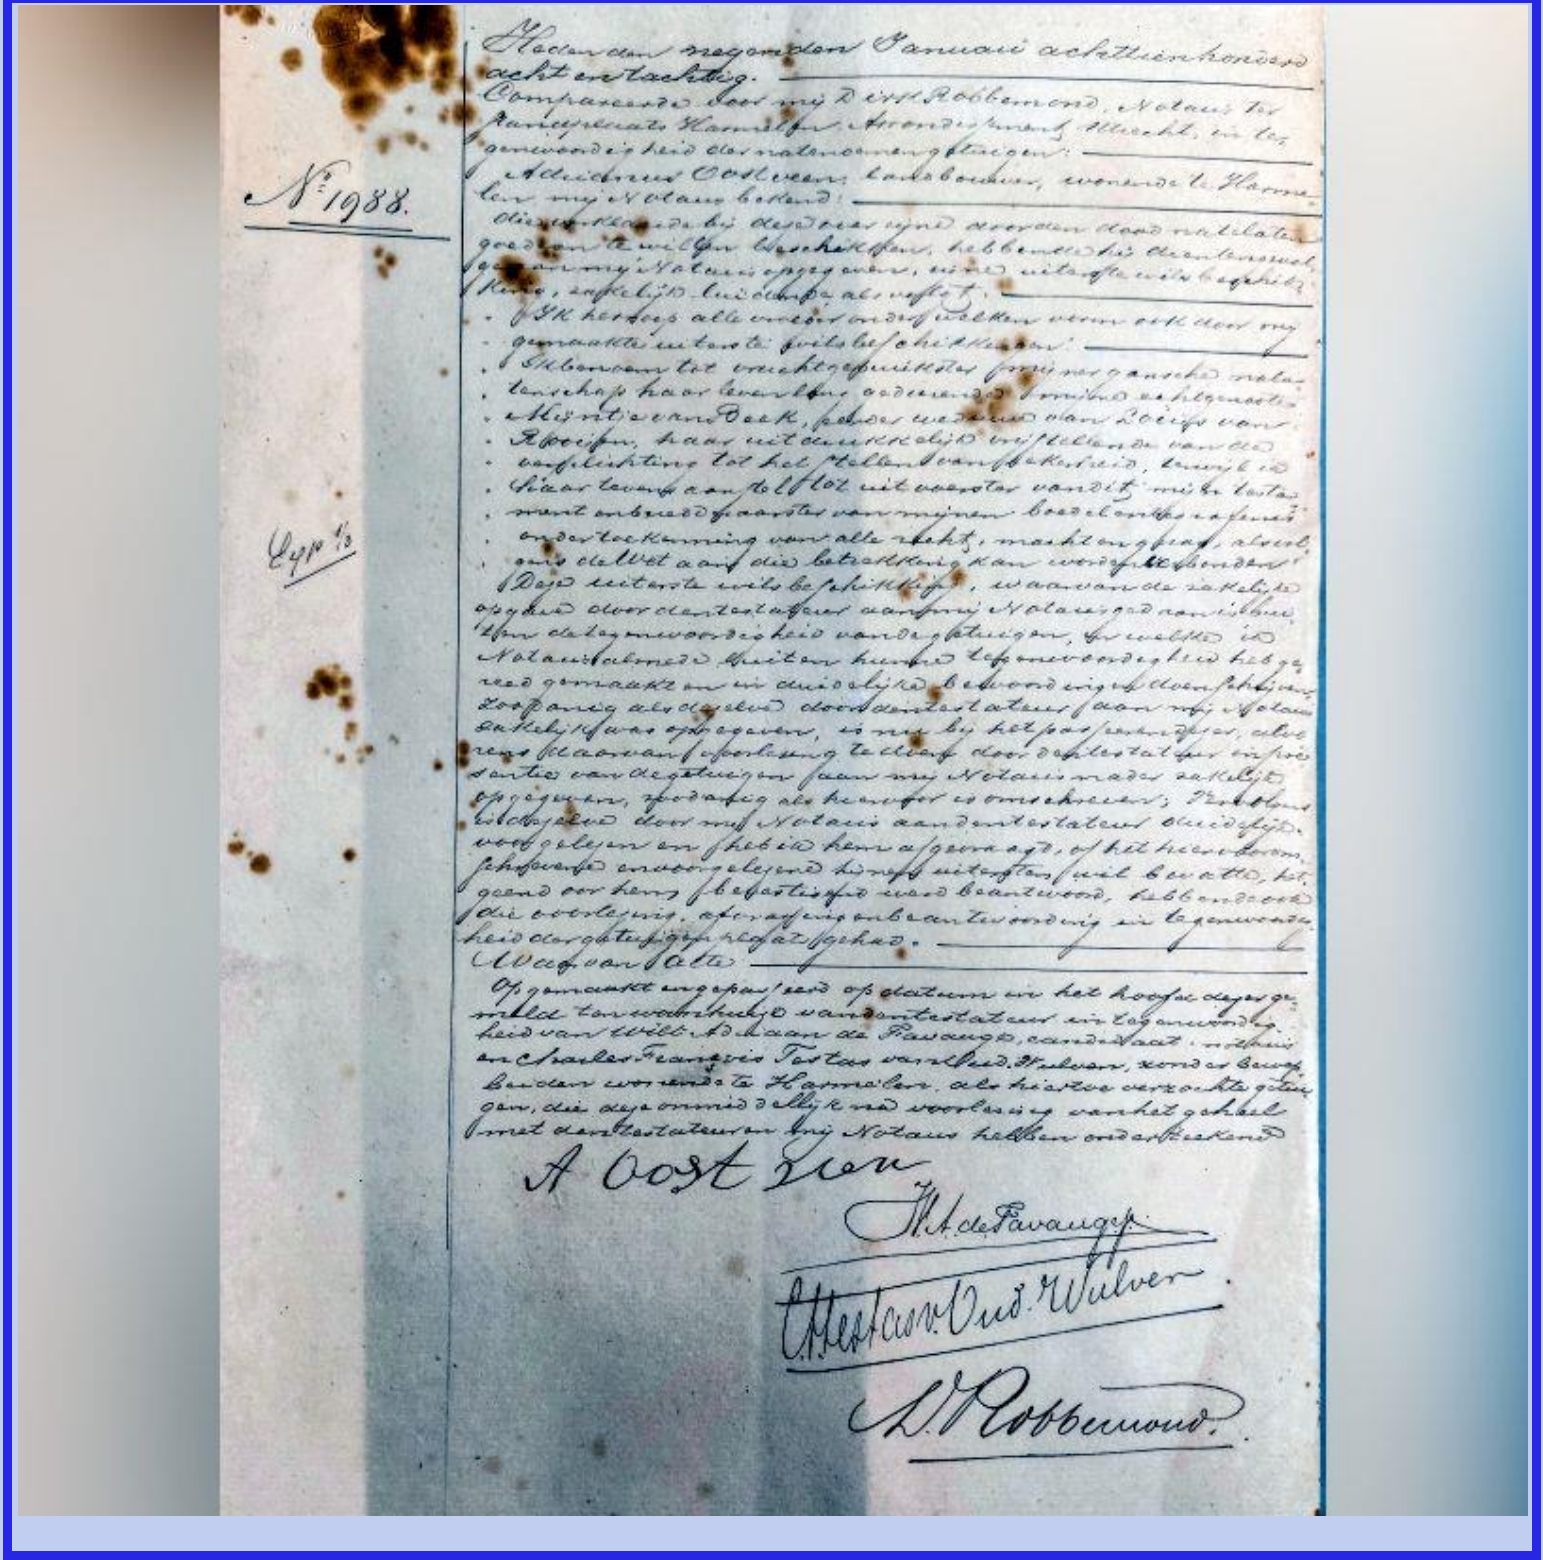 Heden den negenden Januari achttienhonderd
acht en tachtig.
Compareerde voor mij Dirk Robbemond, Notaris ter
standplaats Harmelen, Arrondissement Utrecht, in te-
genwoordigheid der natenoemen getuigen:
Adrianus Oostveen, landbouwer, wonende te Harme-
len, mij Notaris bekend:
No. 1988.
die verklaarde bij deze over zijne door den dood natelaten
goederen te willen beschikken, hebbende hij dientenvol-
gen aan mij Notaris opgegeven, zijne uiterste wilsbeschik-
king, zakelijk luidende als volgt:
Ik herroep alle vroeger onder welken vorm ook door mij
gemaakte uiterste wilsbeschikkingen.
Ik benoem tot vruchtgebruikster mijner gansche nala-
tenschap haar leven lang gedurende mijne echtgenoote
Mijntje van Beek, eerder weduwe van van
Rooijen, haar uitdrukkelijk vrijstellende van de
verplichting tot het stellen van zekerheid, terwijl ik
haar tevens aanstel tot uitvoerster van dit mijn testa-
ment en beredderaarster van mijnen boedel en begrafenis
onder toekenning van alle recht, macht en gezag, als vol-
gens de Wet aan die betrekking kan worden verbonden
Deze uiterste wilsbeschikking, waarvan de zakelijke
opgave door den testateur aan mij Notaris gedaan is bui-
ten de tegenwoordigheid van de getuigen, en welke ik
Notaris almede buiten hunne tegenwoordigheid heb ge-
reed gemaakt en in duidelijke bewoordingen doen schrijven
zoodanig als dezelve door den testateur aan mij Notaris
zakelijk was opgegeven, is nu bij het passeeren dezer, alvo
rens daarvan voorlezing te doen door den testateur in pre
sentie van de getuigen aan mij Notaris nader zakelijk
opgegeven, zoodanig als hiervoor is omschreven;
is dezelve door mij Notaris aan den testateur duidelijk
voorgelezen en heb ik hem afgevraagd, of het hiervoorom-
schrevene en voorgelezene zijnen uitersten wil bevatte, het-
geen door hem bevestigend werd beantwoord, hebbende ook
die voorlezing, afvraging en beantwoording in tegenwoordig
heid der getuigen plaats gehad.
Waarvan Acte
Opgemaakt en gepasseerd op datum in het hoofd dezer ge-
meld ten woonhuize van den testateur in tegenwoordig-
heid van Willem Adriaan de Favauge, candidaat-notaris
en Charles François Testas van Oud-Wulven, zonder beroep
beiden wonende te Harmelen, als hiertoe verzochte getui
gen, die deze onmiddellijk na voorlezing van het geheel
met den testateur en mij Notaris hebben onderteekend
A Oostveen
W.A. de Favauge
C.F. Testas v. Oud-Wulven
D. Robbemond.